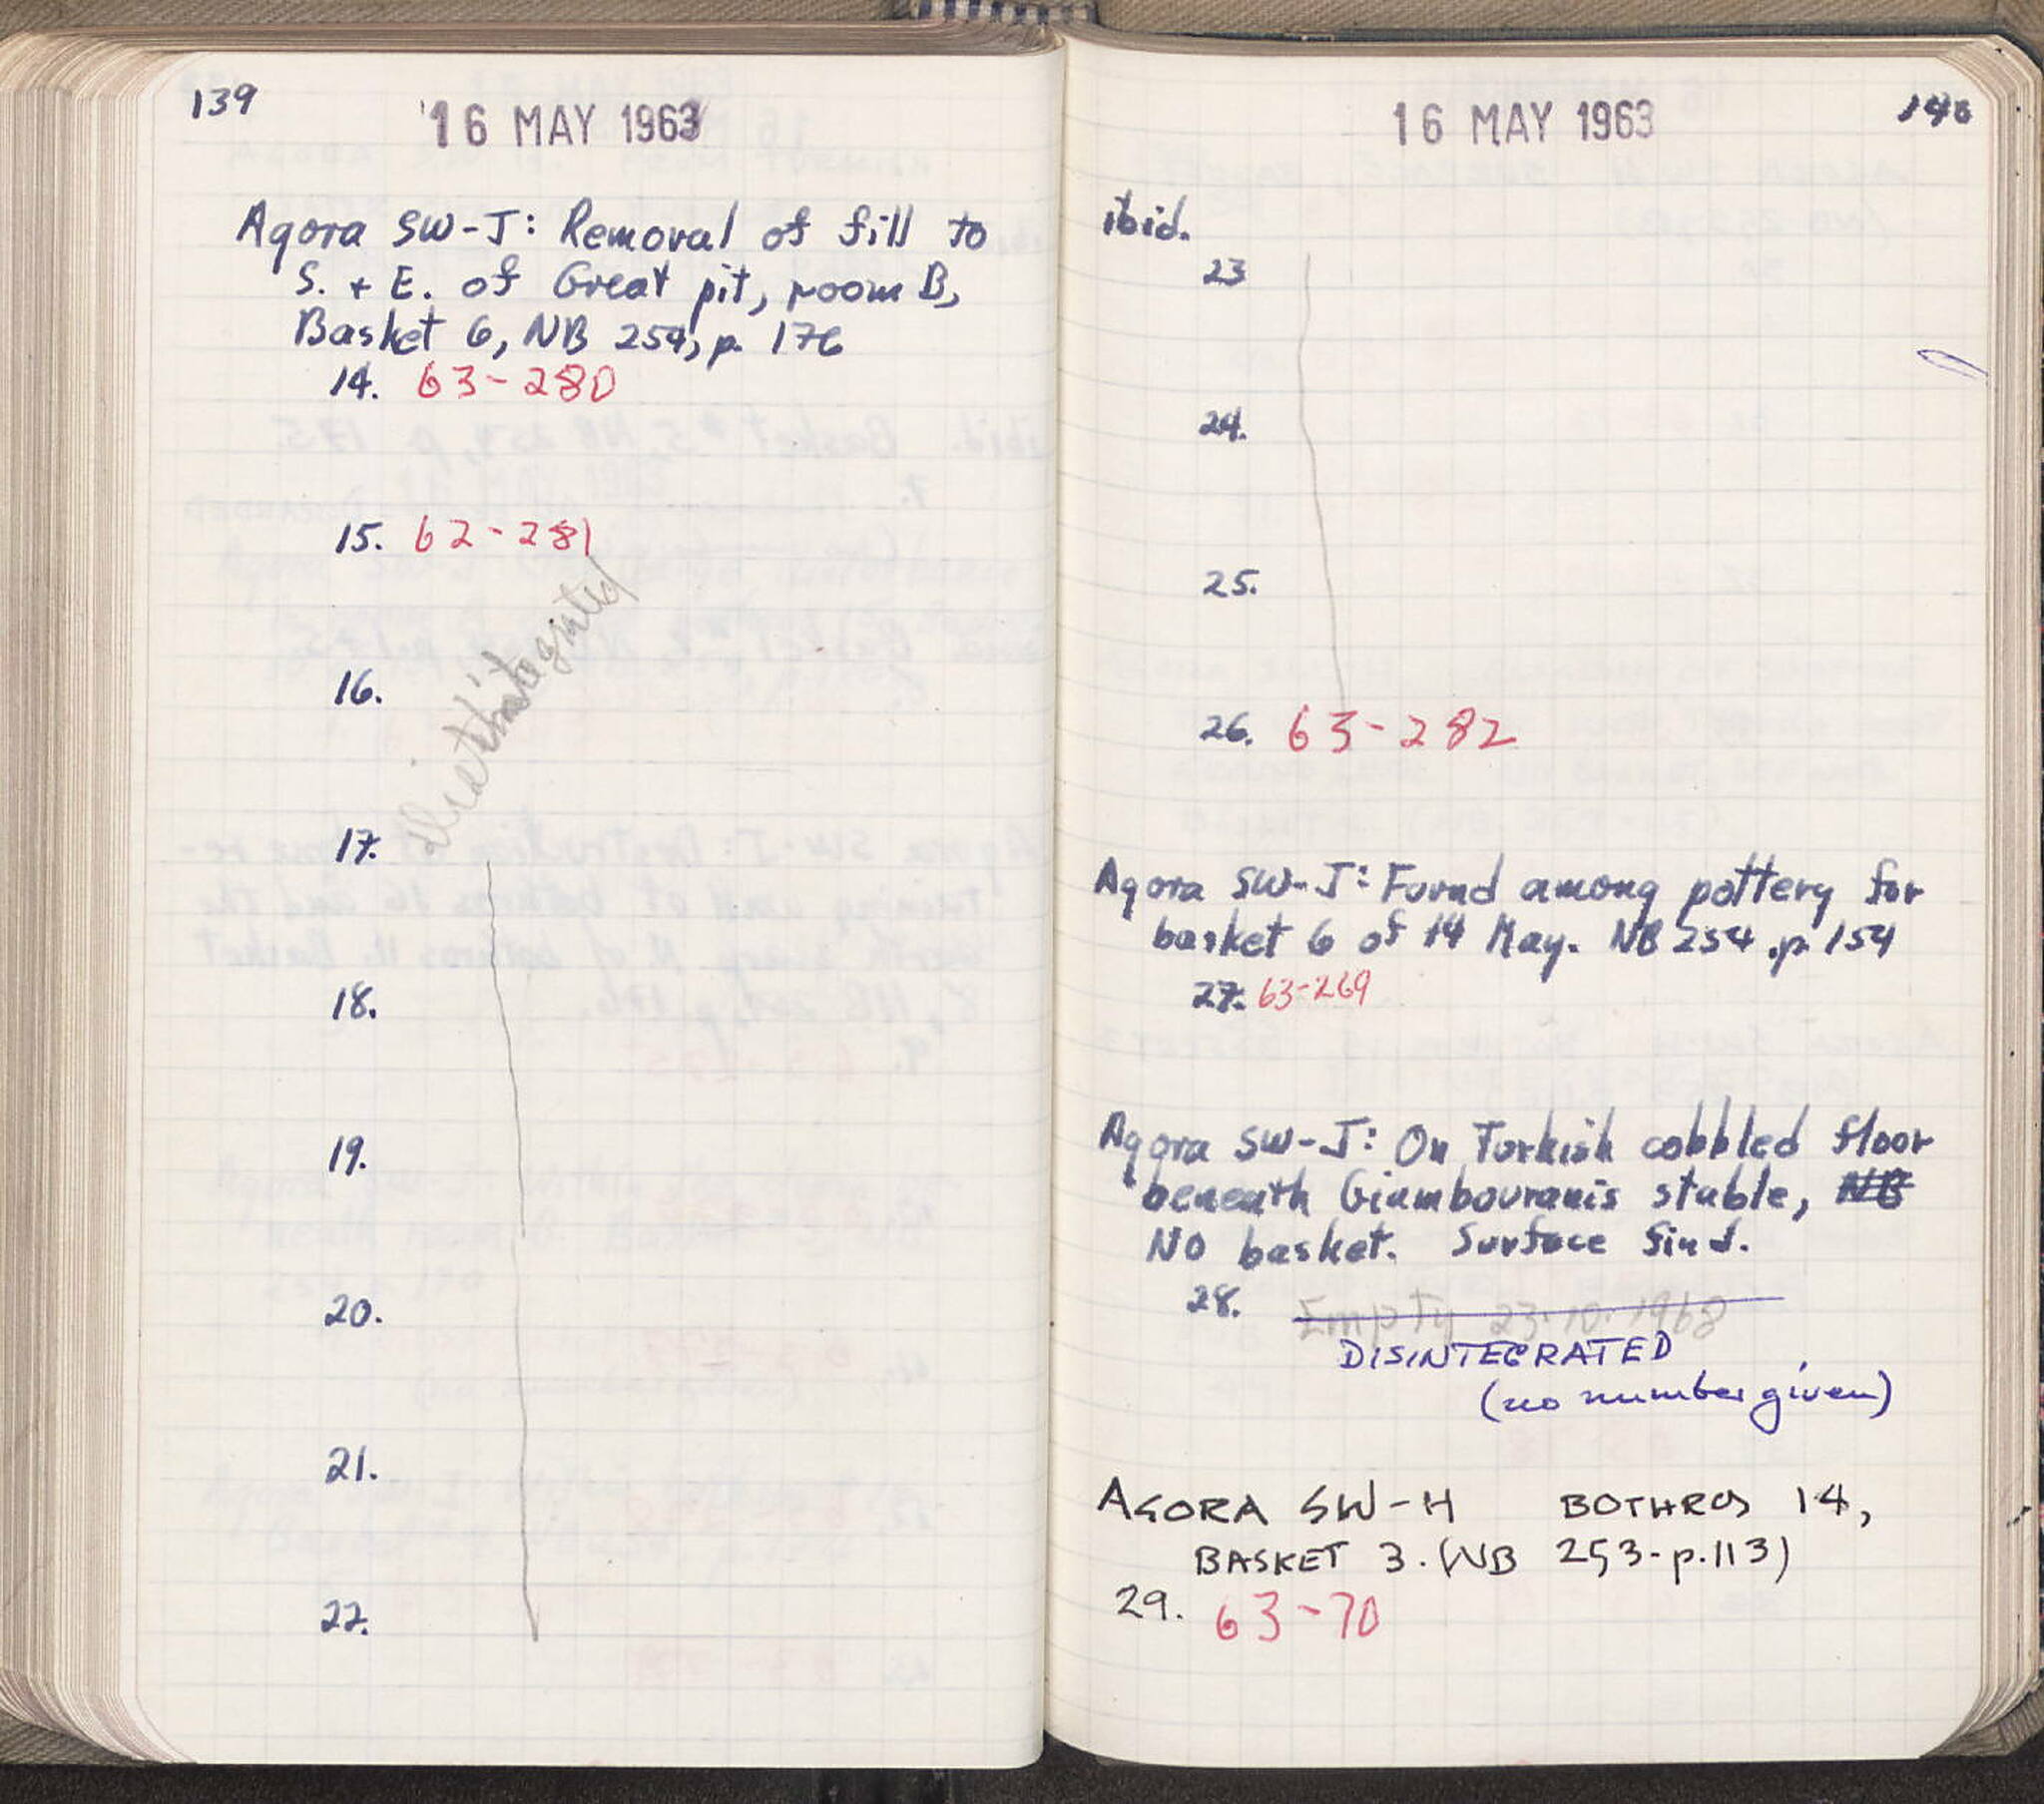 139
16 MAY 1963
Agora SW-J: Removal of fill to
S. + E. of Great pit, room B,
Basket 6, NB 254, p. 176
14. 63-280
15. 62-281
disintegrated
16.
17.
18.
19.
20.
21.
22.
16 MAY 1963
140
ibid.
23
24.
25.
26. 63-282
Agora SW-J: Found among pottery for
basket 6 of 14 May. NB 254 .p 154
27. 63-269
Agora SW-J: On Turkish cobbled floor
beneath Giambouranis stable, NB
No basket. Surface find.
28. Empty 23.10.1968
DISINTEGRATED
(no number given)
AGORA SW-H BOTHROS 14,
BASKET 3. (NB 253-p.113)
29. 63-70